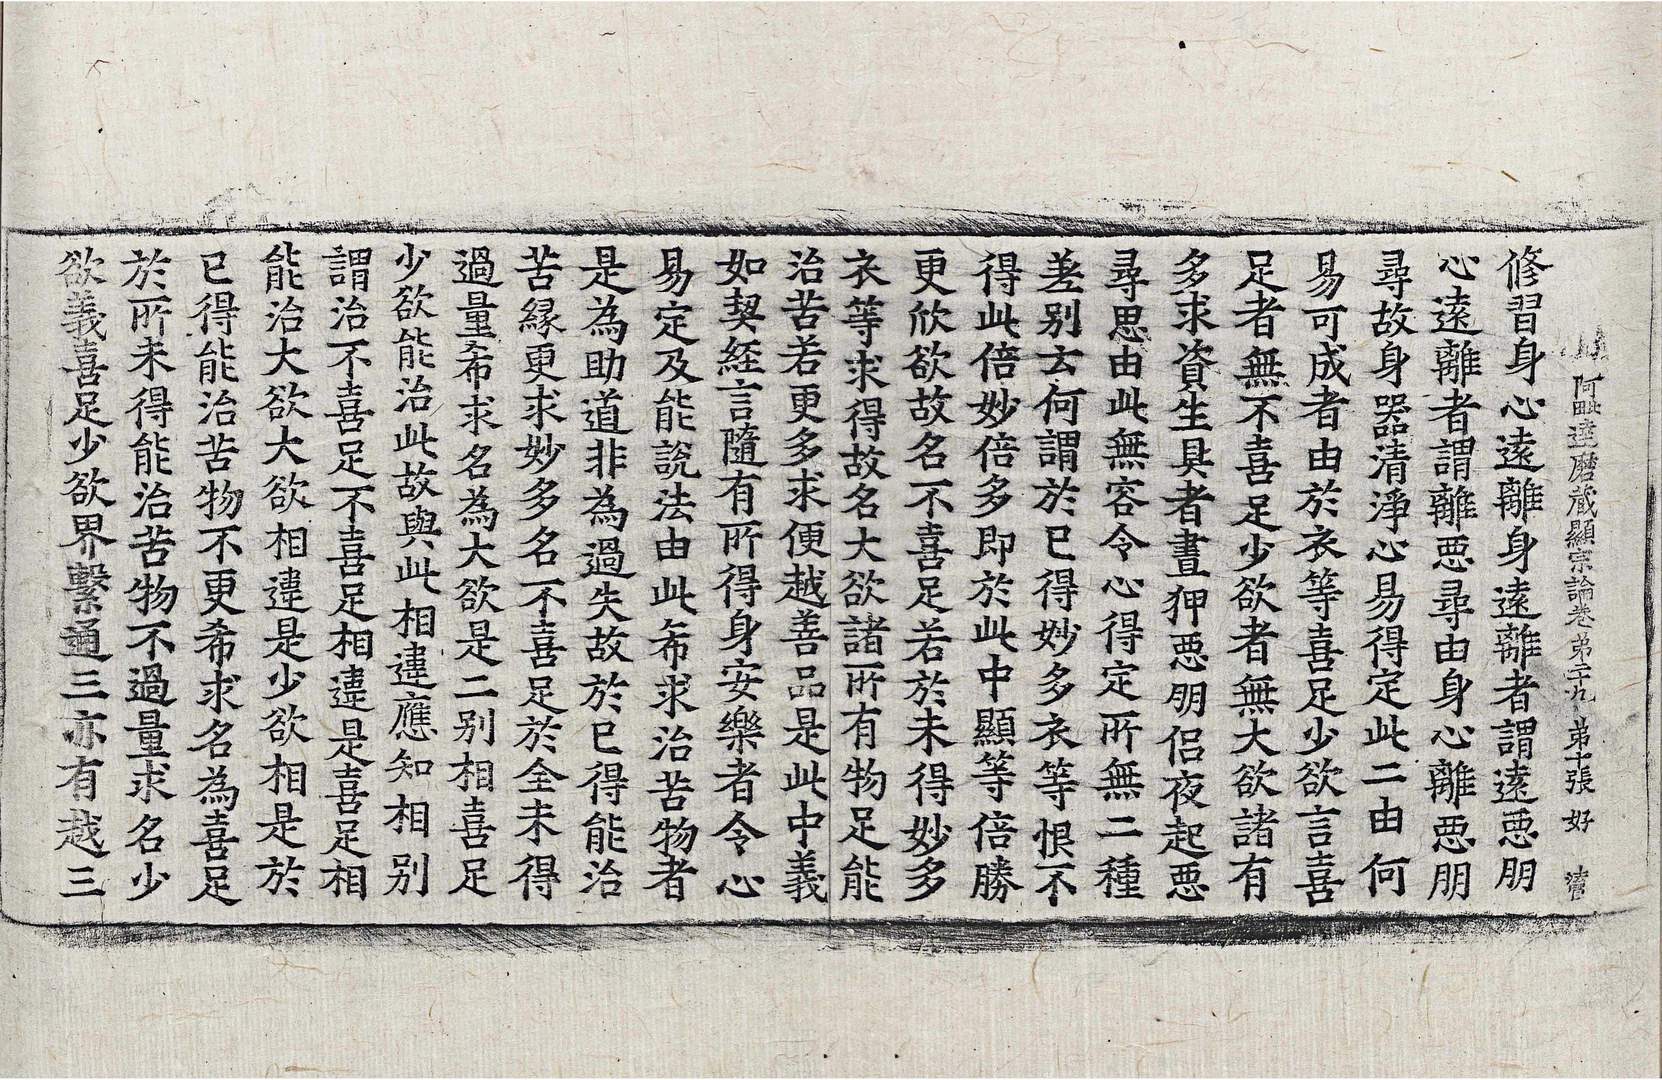 阿毗達磨蔵顯宗論卷苐二十九 苐十張 好
修習身心遠離身遠離者謂遠悪朋
心遠離者謂離悪尋由身心離悪朋
尋故身器清淨心易得定此二由何
易可成者由於衣等喜足少欲言喜
足者無不喜足少欲者無大欲諸有
多求資生具者晝狎悪朋侣夜起悪
尋思由此無容令心得定所無二種
差別云何謂於已得妙多衣等恨不
得此倍妙倍多即於此中顯等倍勝
更欣欲故名不喜足若於未得妙多
衣等求得故名大欲諸所有物足能
治苦若更多求便越善品是此中義
如契経言隨有所得身安樂者令心
易定及能說法由此希求治苦物者
是為助道非為過失故於已得能治
苦縁更求妙多名不喜足於全未得
過量希求名為大欲是二别相喜足
少欲能治此故與此相違應知相別
謂治不喜足不喜足相違是喜足相
能治大欲大欲相違是少欲相是於
已得能治苦物不更希求名為喜足
於所未得能治苦物不過量求名少
欲義喜足少欲界繫通三亦有越三